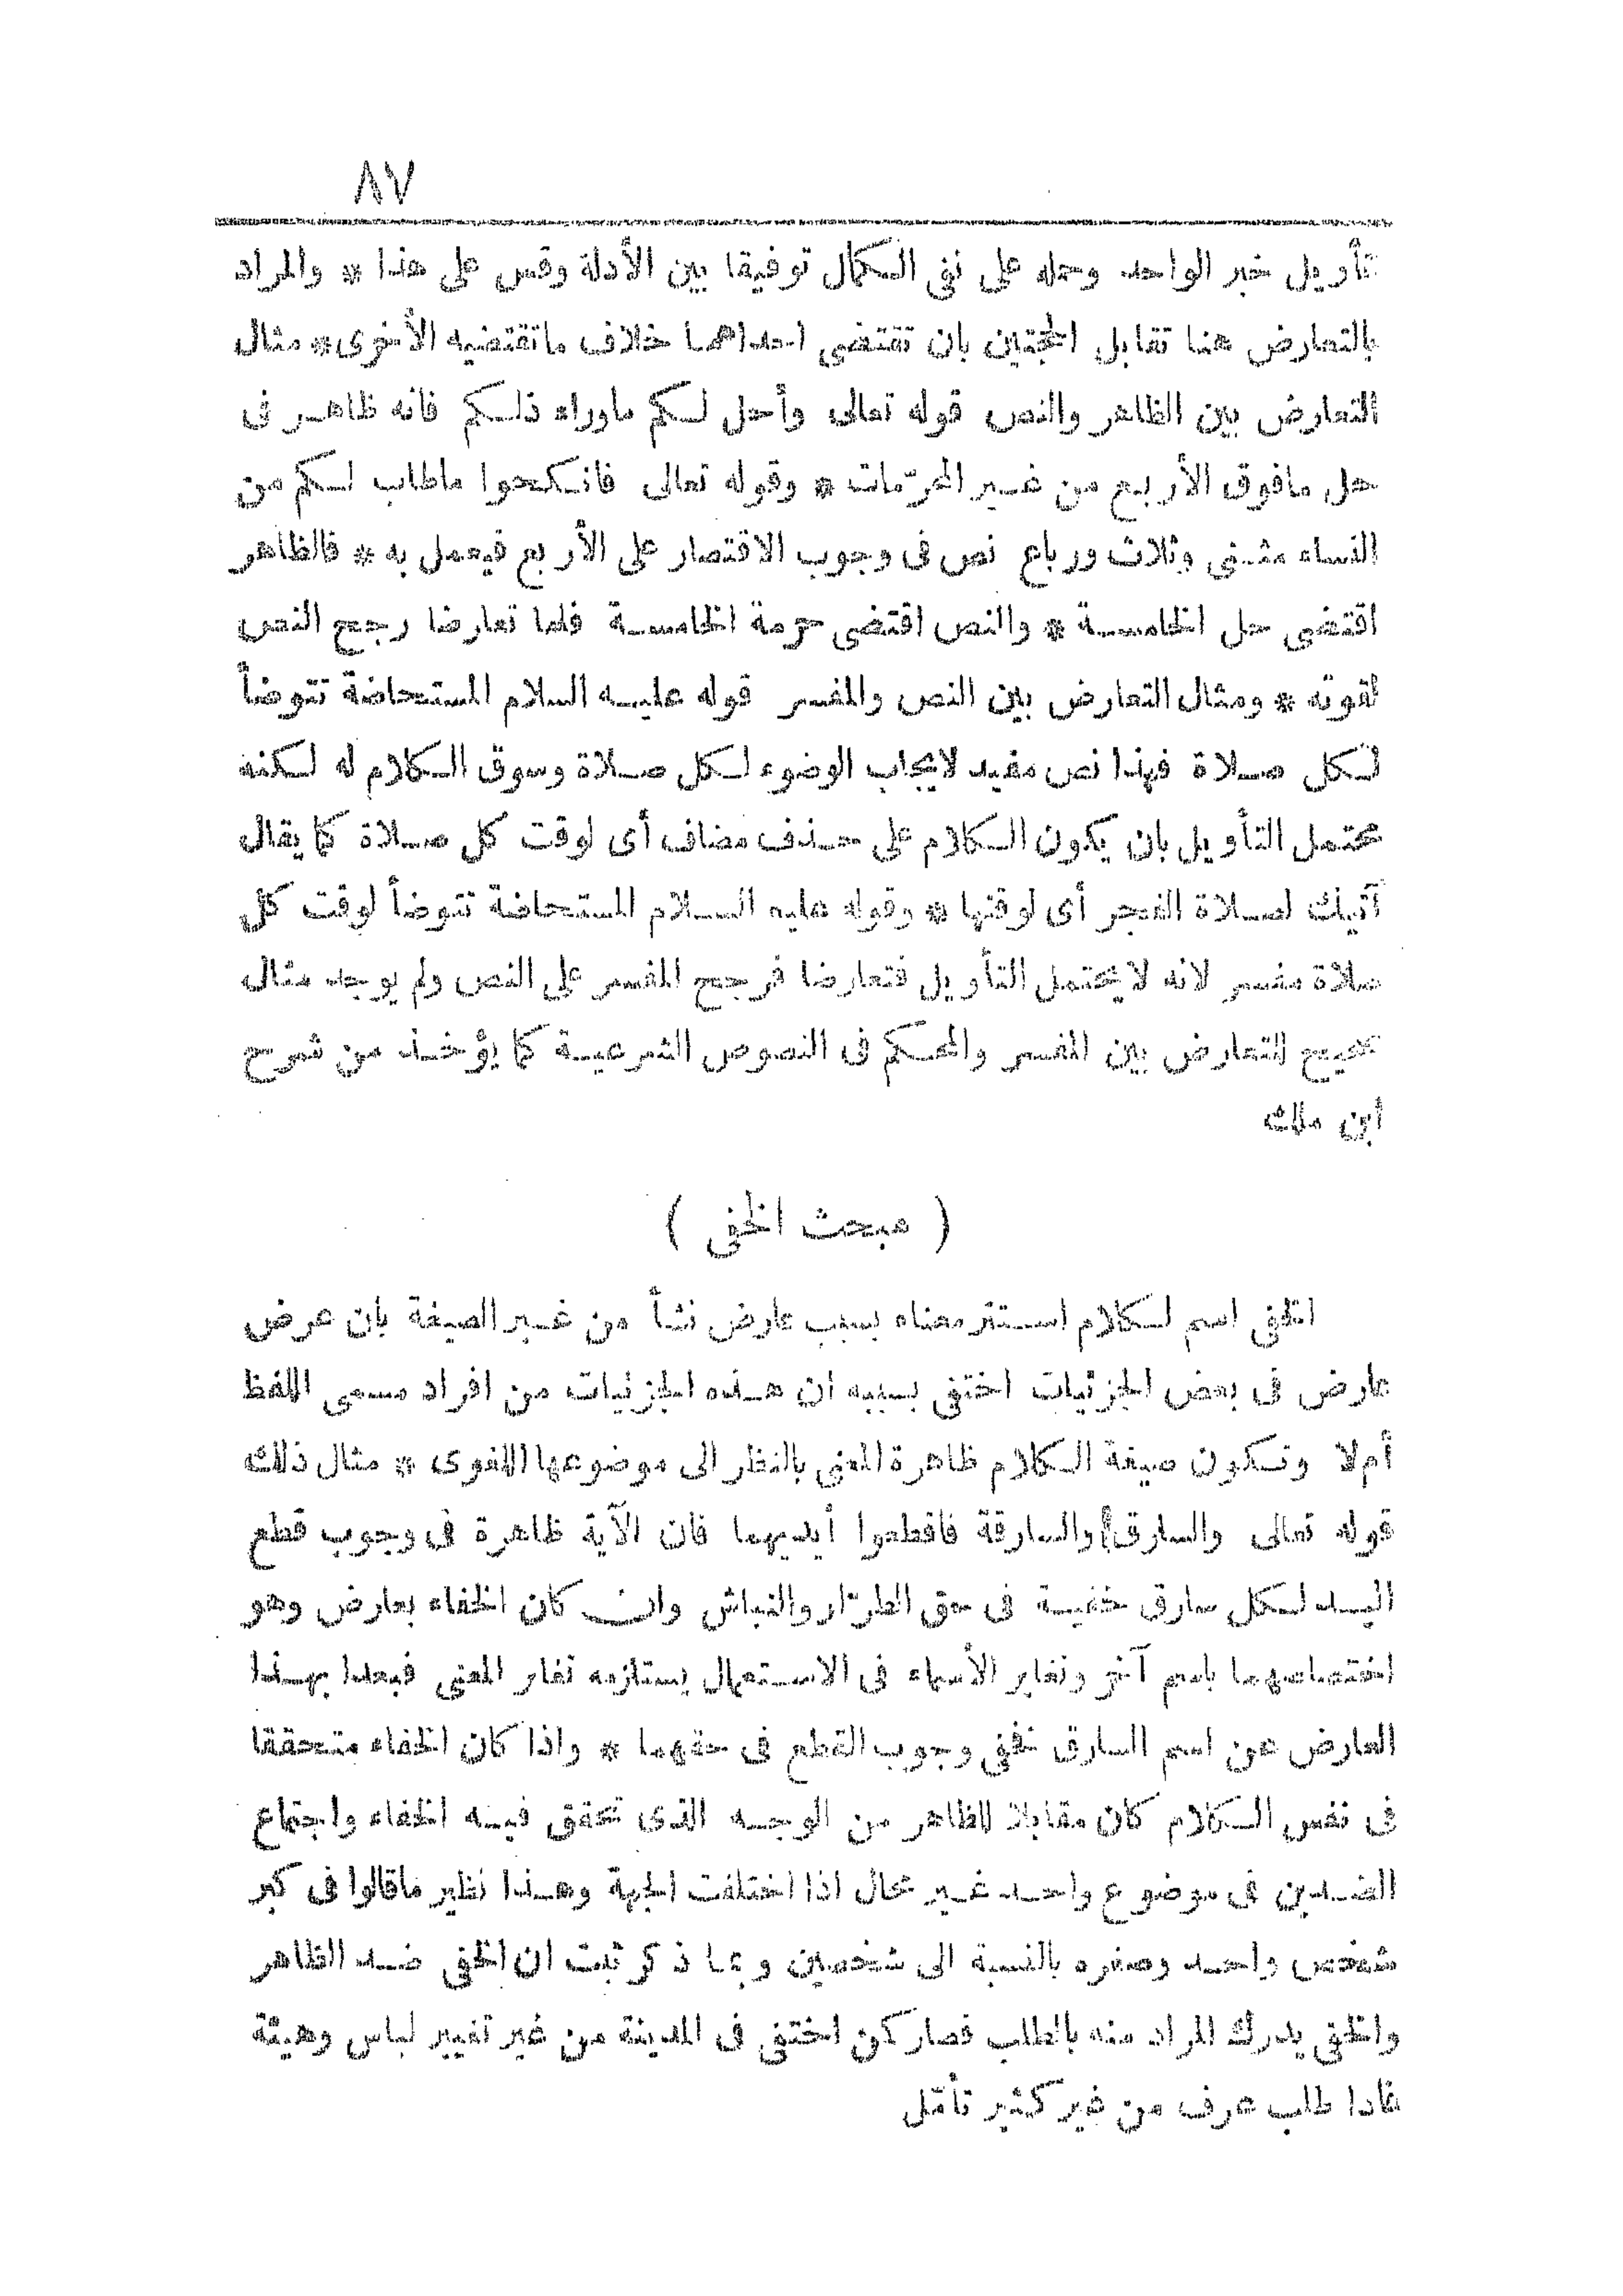 ٨٧
تأويل خبر الواحد وحمله على نفى الكمال توفيقا بين الأدلة وقس على هذا * والمراد
بالتعارض هنا تقابل الحجتين بان تقتضى احداهما خلاف ماتقتضيه الأخرى * مثال
التعارض بين الظاهر والنص قوله تعالى وأحل لكم ماوراء ذلكم فانه ظاهر فى
حل مافوق الأربع من غير المحرّمات * وقوله تعالى فانكحوا ماطاب لكم من
النساء مثنى وثلاث ورباع نص فى وجوب الاقتصار على الأربع فيعمل به * فالظاهر
اقتضى حل الخامسة * والنص اقتضى حرمة الخامسة فلما تعارضا رجح النص
لقوته * ومثال التعارض بين النص والمفسر قوله عليه السلام المستحاضة تتوضأ
لكل صلاة فهذا نص مفيد لايجاب الوضوء لكل صلاة وسوق الكلام له لكنه
محتمل التأويل بان يكون الكلام على حذف مضاف أى لوقت كل صلاة كما يقال
آتيك لصلاة الفجر أى لوقتها * وقوله عليه السلام المستحاضة تتوضأ لوقت كل
صلاة مفسر لانه لا يحتمل التأويل فتعارضا فرجح المفسر على النص ولم يوجد مثال
صحيح للتعارض بين المفسر والمحكم فى النصوص الشرعية كما يؤخذ من شرح
ابن ملك
( مبحث الخفى )
الخفى اسم لكلام استتر معناه بسبب عارض نشأ من غير الصيغة بان عرض
عارض فى بعض الجزئيات اختفى بسببه ان هذه الجزئيات من افراد مسمى اللفظ
أم لا وتكون صيغة الكلام ظاهرة المعنى بالنظر الى موضوعها اللغوى * مثال ذلك
قوله تعالى والسارق والسارقة فاقطعوا أيديهما فان الآية ظاهرة فى وجوب قطع
اليد لكل سارق خفية فى حق الطرّار والنباش وان كان الخفاء بعارض وهو
اختصاصهما باسم آخر وتغاير الأسماء فى الاستعمال يستلزمه تغاير المعنى فبعدا بهذا
العارض عن اسم السارق فخفى وجوب القطع فى حقهما * واذا كان الخفاء متحققا
فى نفس الكلام كان مقابلا للظاهر من الوجه الذى تحقق فيه الخفاء واجتماع
الضدين فى موضوع واحد غير محال اذا اختلفت الجهة وهذا نظير ماقالوا فى كبر
شخص واحد وصغره بالنسبة الى شخصين وبما ذكر ثبت ان الخفى ضد الظاهر
والخفى يدرك المراد منه بالطلب فصار كمن اختفى فى المدينة من غير تغيير لباس وهيئة
فاذا طلب عرف من غير كثير تأمّل